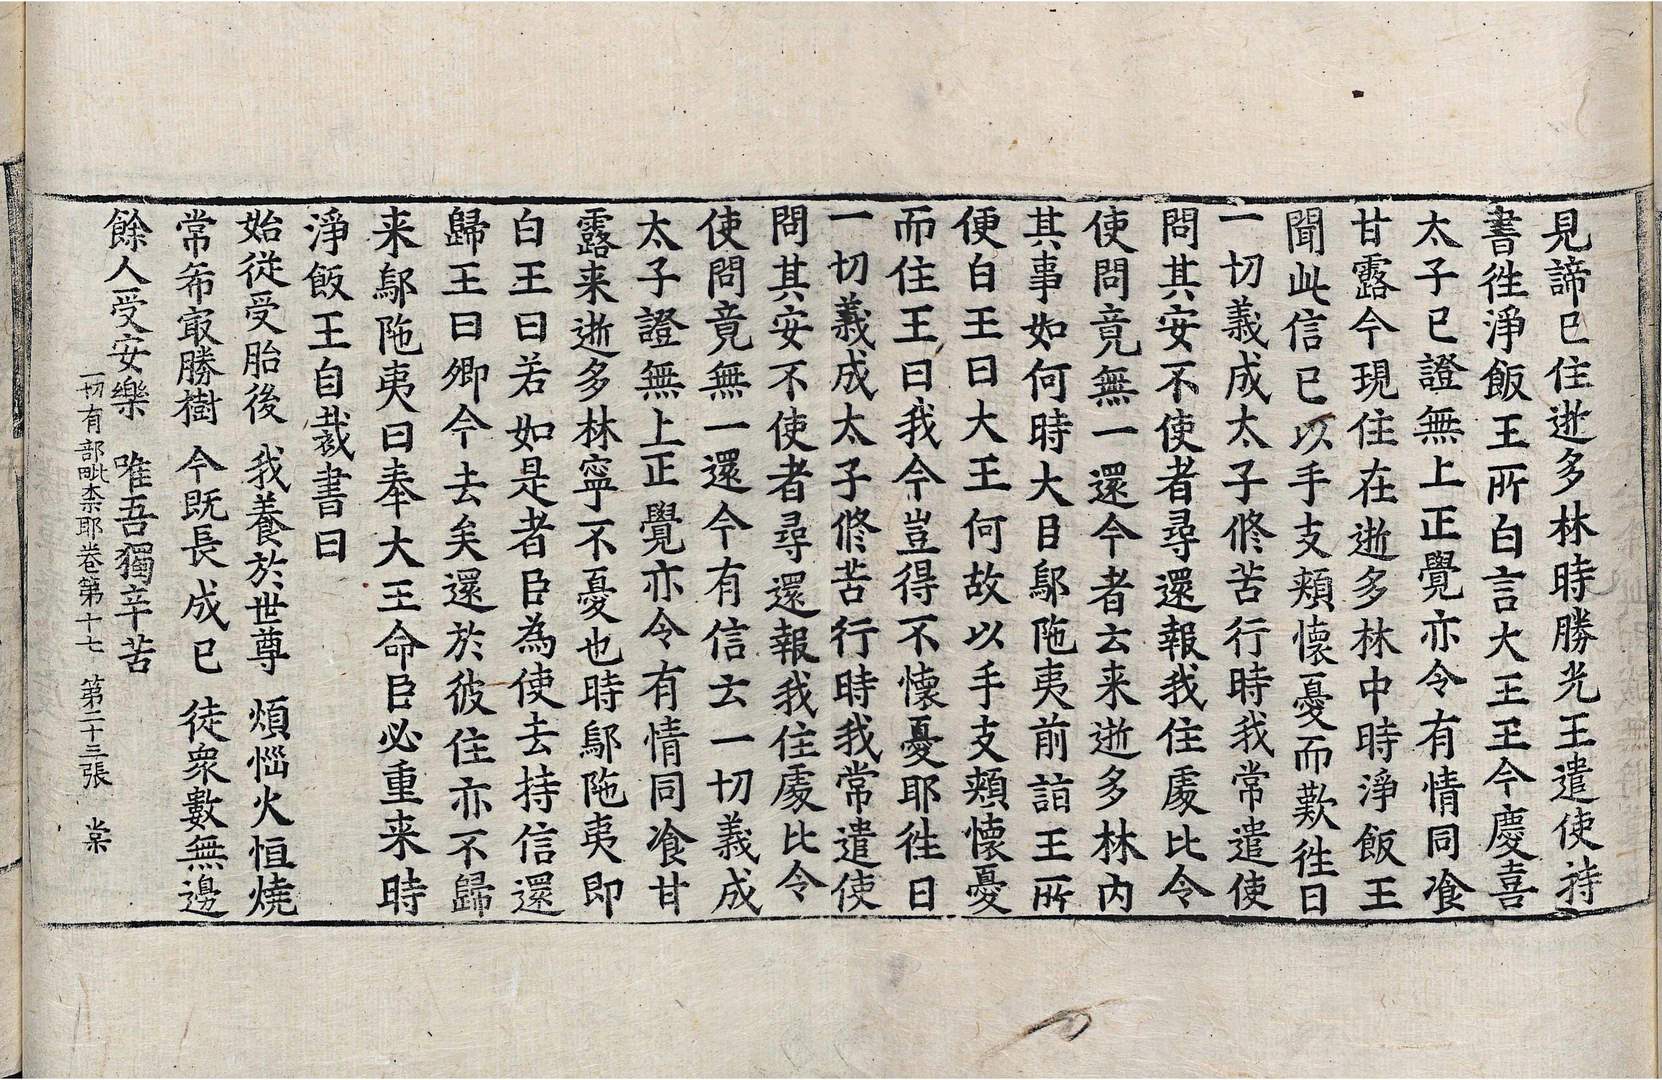 見諦已住逝多林時勝光王遣使持
書徃淨飯王所白言大王王今慶喜
太子已證無上正覺亦令有情同飡
甘露今現住在逝多林中時淨飯王
聞此信已以手支頰懷憂而歎徃日
一切義成太子修苦行時我常遣使
問其安不使者尋還報我住處比令
使問竟無一還今者云来逝多林內
其事如何時大臣鄔陁夷前詣王所
便白王曰大王何故以手支頰懷憂
而住王曰我今豈得不懷憂耶徃日
一切義成太子修苦行時我常遣使
問其安不使者尋還報我住處比令
使問竟無一還今有信云一切義成
太子證無上正覺亦令有情同飡甘
露来逝多林寧不憂也時鄔陁夷即
白王曰若如是者臣為使去持信還
歸王曰卿今去矣還於彼住亦不歸
来鄔陁夷曰奉大王命臣必重来時
淨飯王自裁書曰
始從受胎後 我養於世尊 煩惱火恒燒
常希㝡勝樹 今既長成已 徒衆數無邊
餘人受安樂 唯吾獨辛苦
一切有部毗柰耶卷第十七 第二十三張 棠